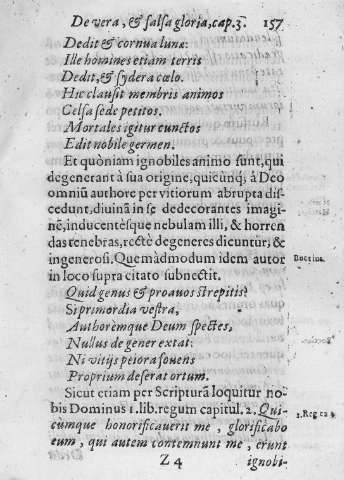 De vera, & falsa gloria, cap. 3. 157
Dedit & cornua lunæ:
Ille homines etiam terris
Dedit, & sydera cœlo.
Hic clausit membris animos
Celsa sede petitos.
Mortales igitur cunctos
Edit nobile germen.
Et quòniam ignobiles animo sunt, qui
degenerant à sua origine, quicũq; à Deo
omniũ authore per vitiorum abrupta dis-
cedunt, diuinã in se dedecorantes imagi-
nẽ, inducentèsque nebulam illi, & horren
das tenebras, rectè degeneres dicuntur, &
ingenerosi. Quemàdmodum idem autor
Boetius.
in loco supra citato subnectit.
Quid genus & proauos strepitis?
Si primordia vestra,
Authorèmque Deum spectes,
Nullus degener extat:
Ni vitijs peiora fouens
Proprium deserat ortum.
Sicut etiam per Scripturã loquitur no-
bis Dominus 1. lib. regum capitul. 2. Qui-
1. Reg ca 2
cùmque honorificauerit me, glorificabo
eum, qui autem contemnunt me, erunt
Z 4 ignobi-